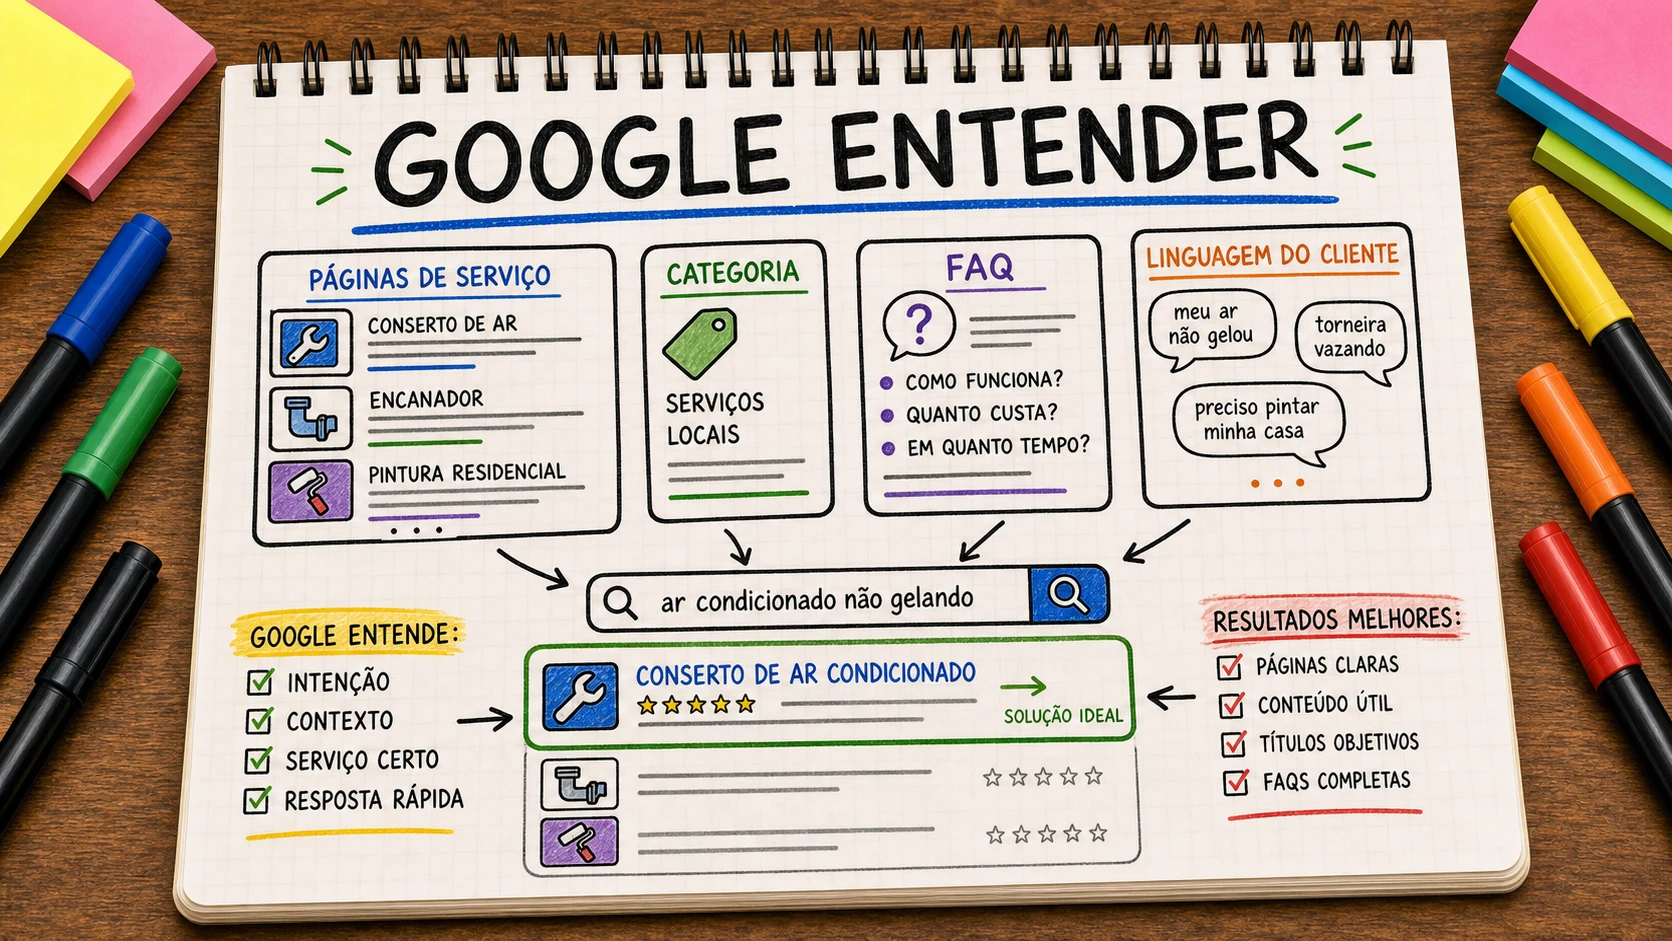 GOOGLE ENTENDER
PÁGINAS DE SERVIÇO
CONSERTO DE AR
ENCANADOR
PINTURA RESIDENCIAL
CATEGORIA
SERVIÇOS
LOCAIS
FAQ
?
COMO FUNCIONA?
QUANTO CUSTA?
EM QUANTO TEMPO?
LINGUAGEM DO CLIENTE
meu ar
não gelou
torneira
vazando
preciso pintar
minha casa
ar condicionado não gelando
GOOGLE ENTENDE:
INTENÇÃO
CONTEXTO
SERVIÇO CERTO
RESPOSTA RÁPIDA
CONSERTO DE AR CONDICIONADO
SOLUÇÃO IDEAL
RESULTADOS MELHORES:
PÁGINAS CLARAS
CONTEÚDO ÚTIL
TÍTULOS OBJETIVOS
FAQS COMPLETAS